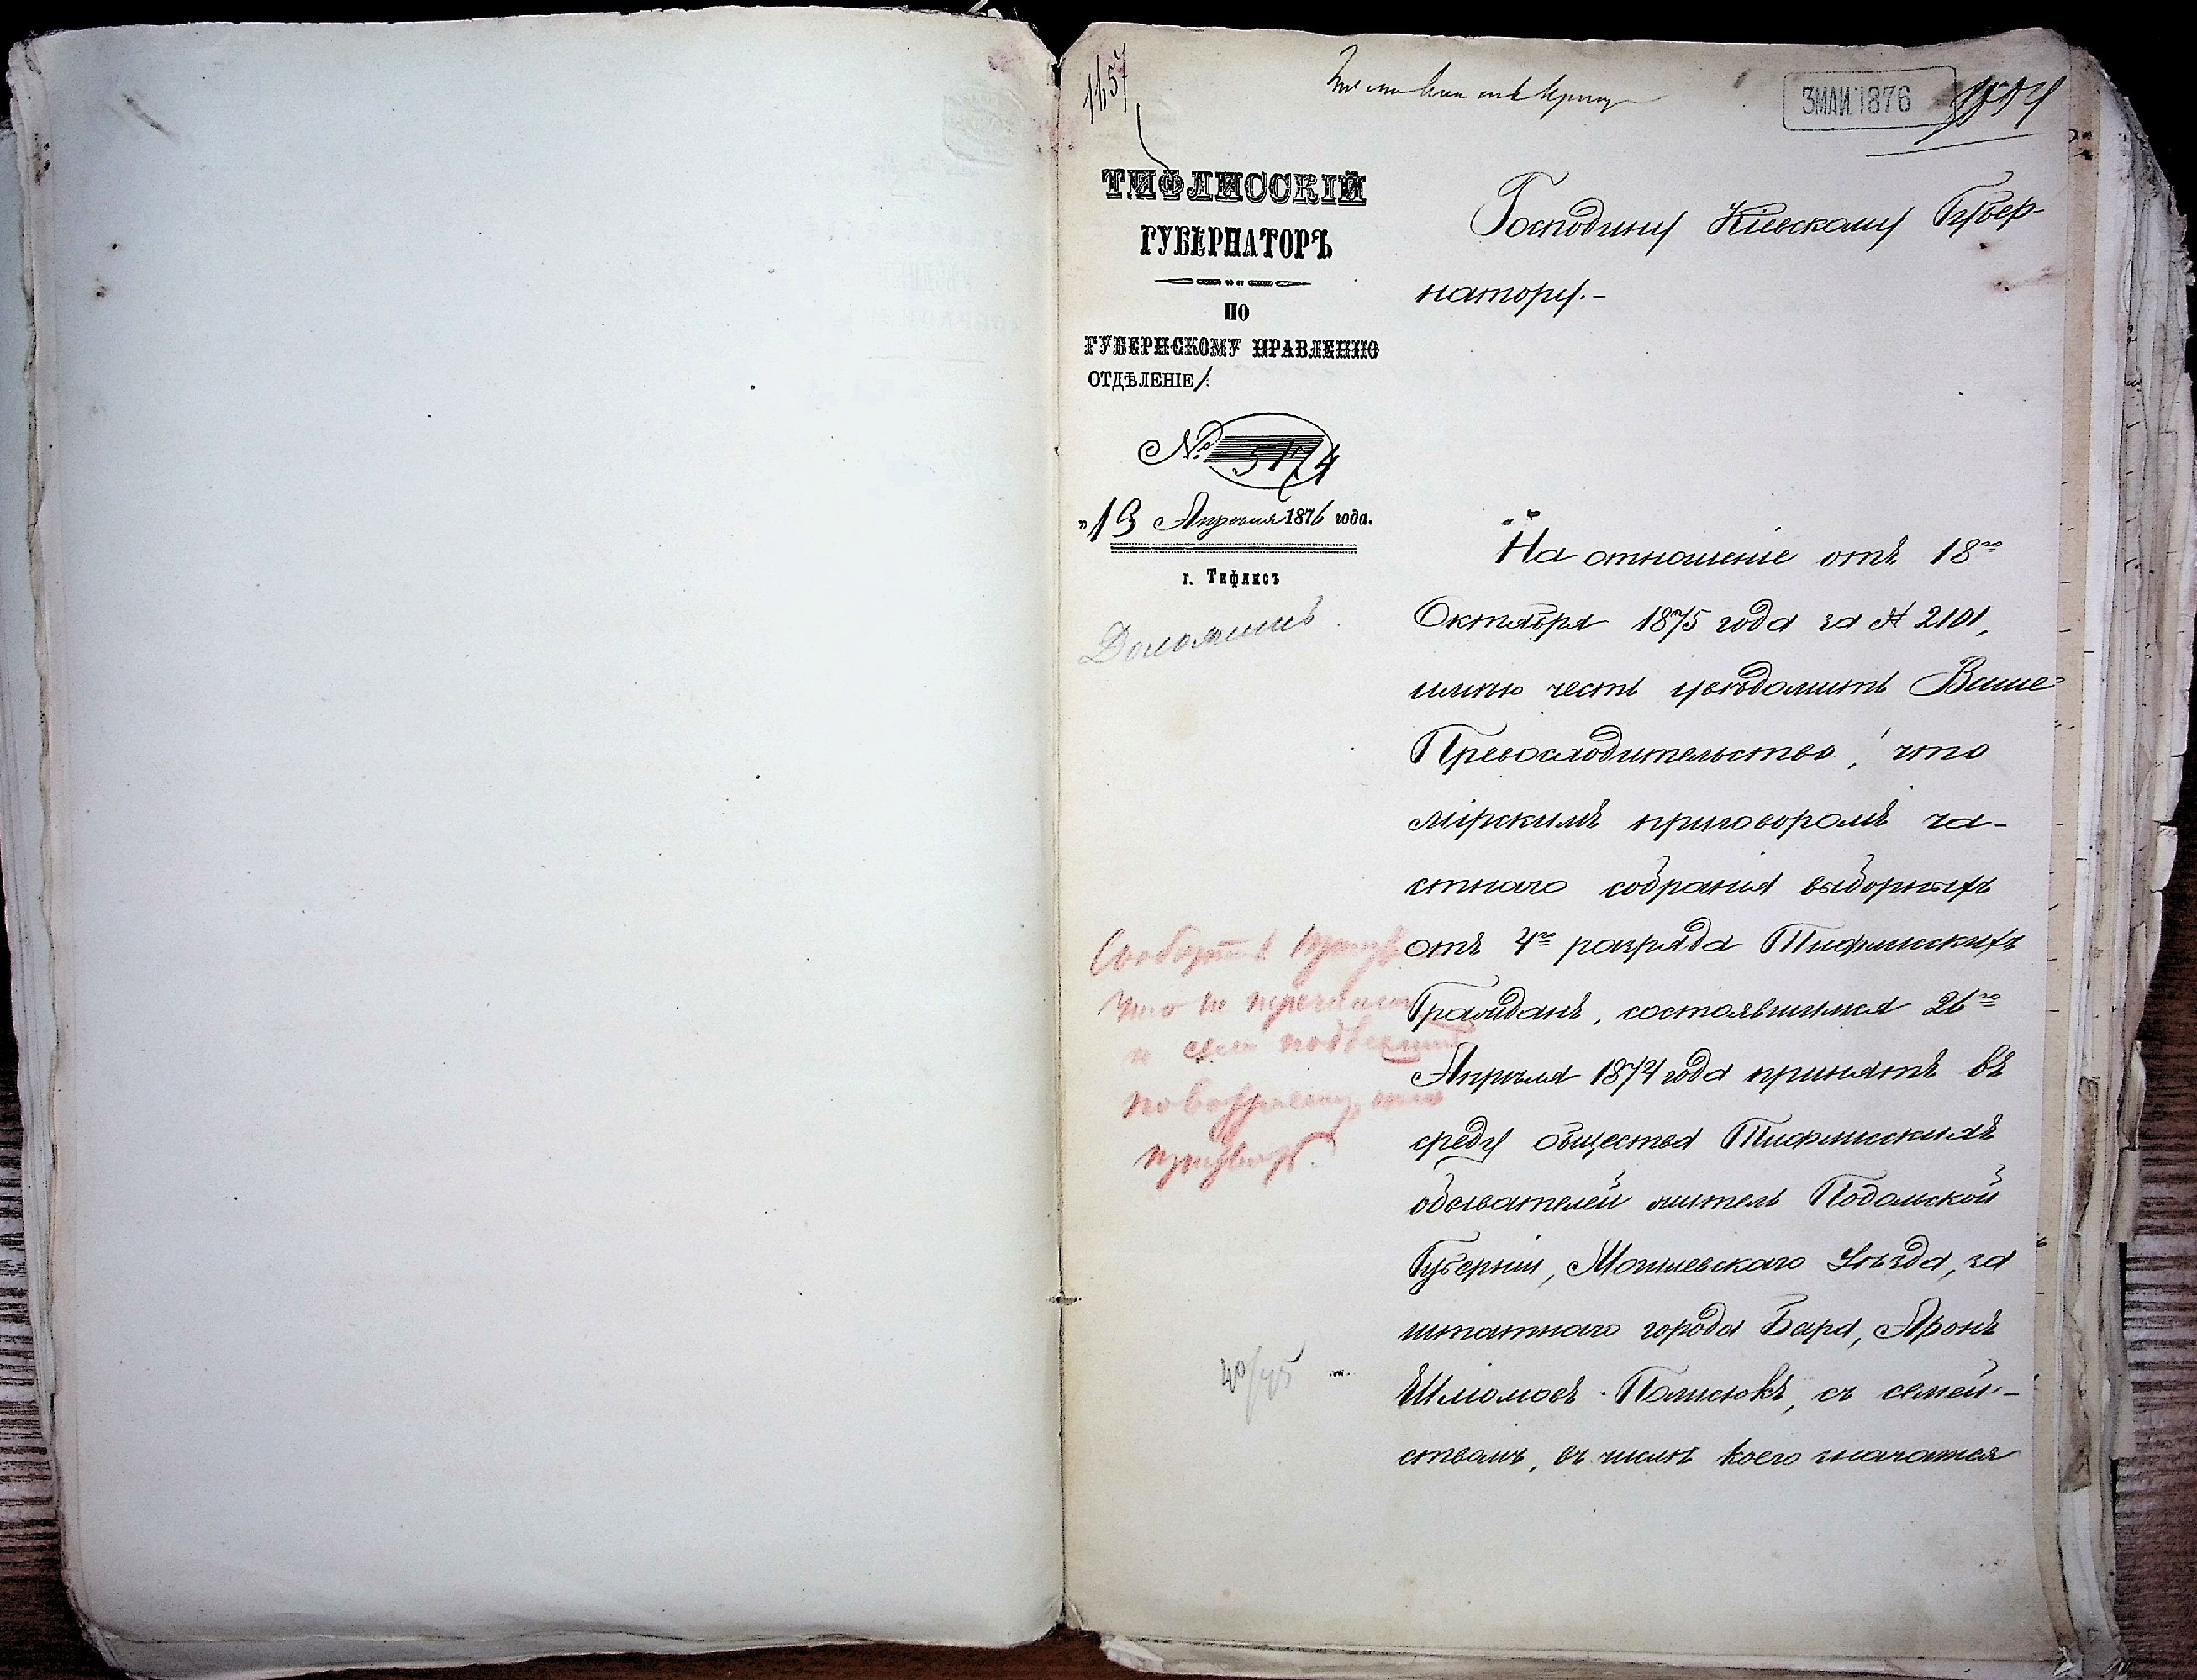 1157
3 МАЙ 1876
ТИФЛИССКІЙ
ГУБЕРНАТОРЪ
ПО
ГУБЕРНСКОМУ ПРАВЛЕНІЮ
ОТДѢЛЕНІЕ 1.
№ 5174
"13 Апрѣля 1876 года.
г. Тифлисъ
Господину Кіевскому Губер-
натору.-
На отношеніе отъ 18го
Октября 1875 года за № 2101,
имѣю честь увѣдомить Ваше
Превосходительство, что
мірскимъ приговоромъ ча-
стнаго собранія выборныхъ
отъ 4го разряда Тифлисскихъ
Гражданъ, состоявшимся 26го
Апрѣля 1874 года принятъ въ
среду общества Тифлисскихъ
обывателей житель Подольской
Губерніи, Могилевскаго Уѣзда, за
штатнаго города Бара, Аронъ
Шліомовъ Полисюкъ, съ семей-
ствомъ, въ числѣ коего значатся
Доложить
что не
40/75